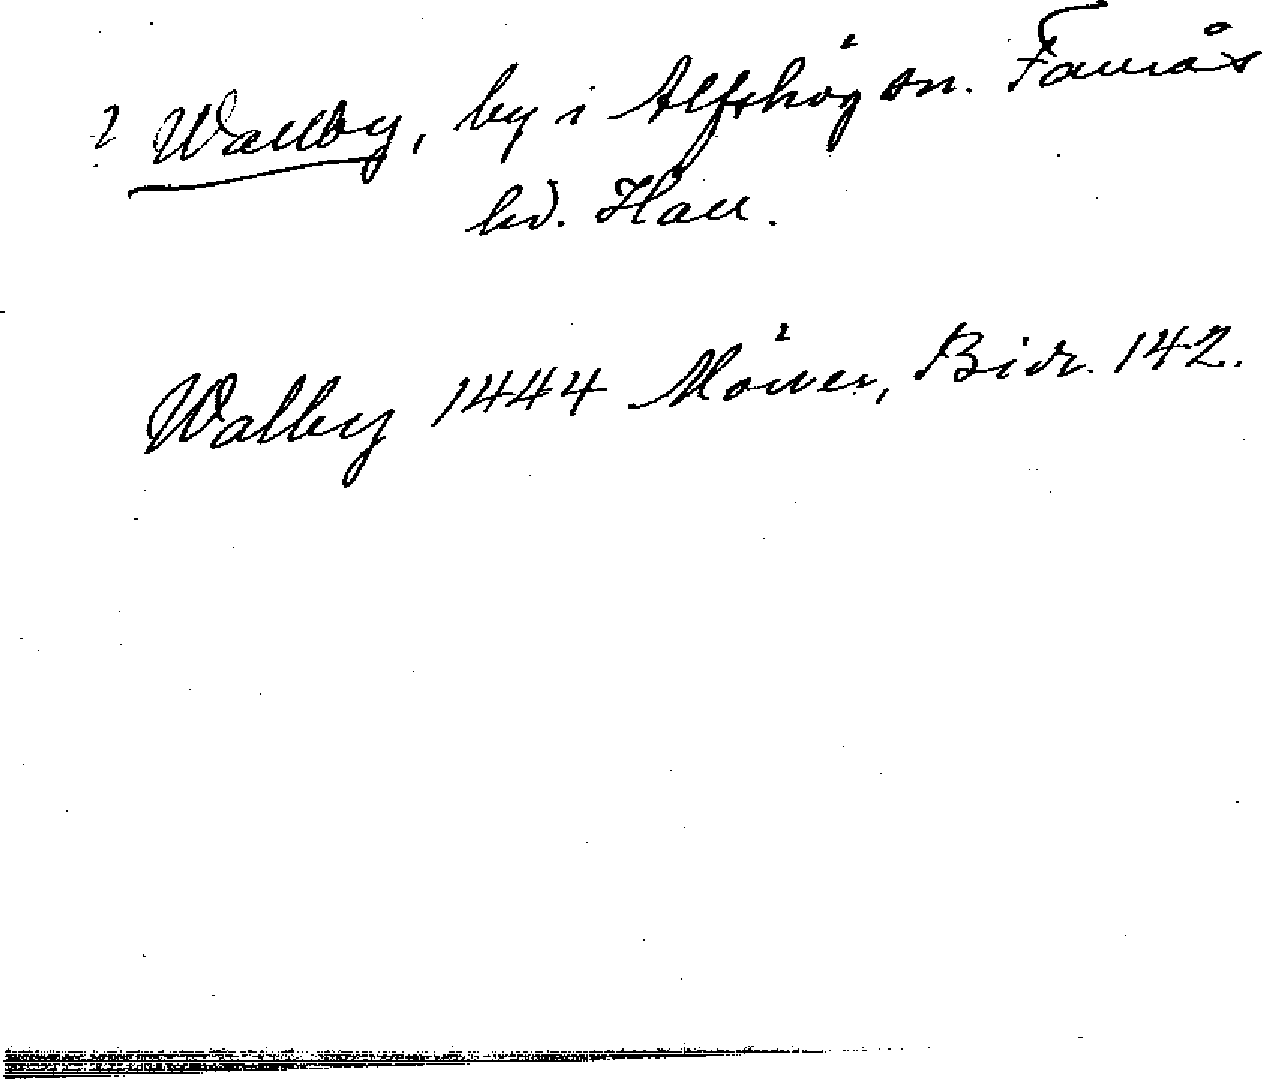 ? Wallby, by i Alfshög sn. Faurås
hd. Hall.
Walby 1444 Möller, Bidr. 142.